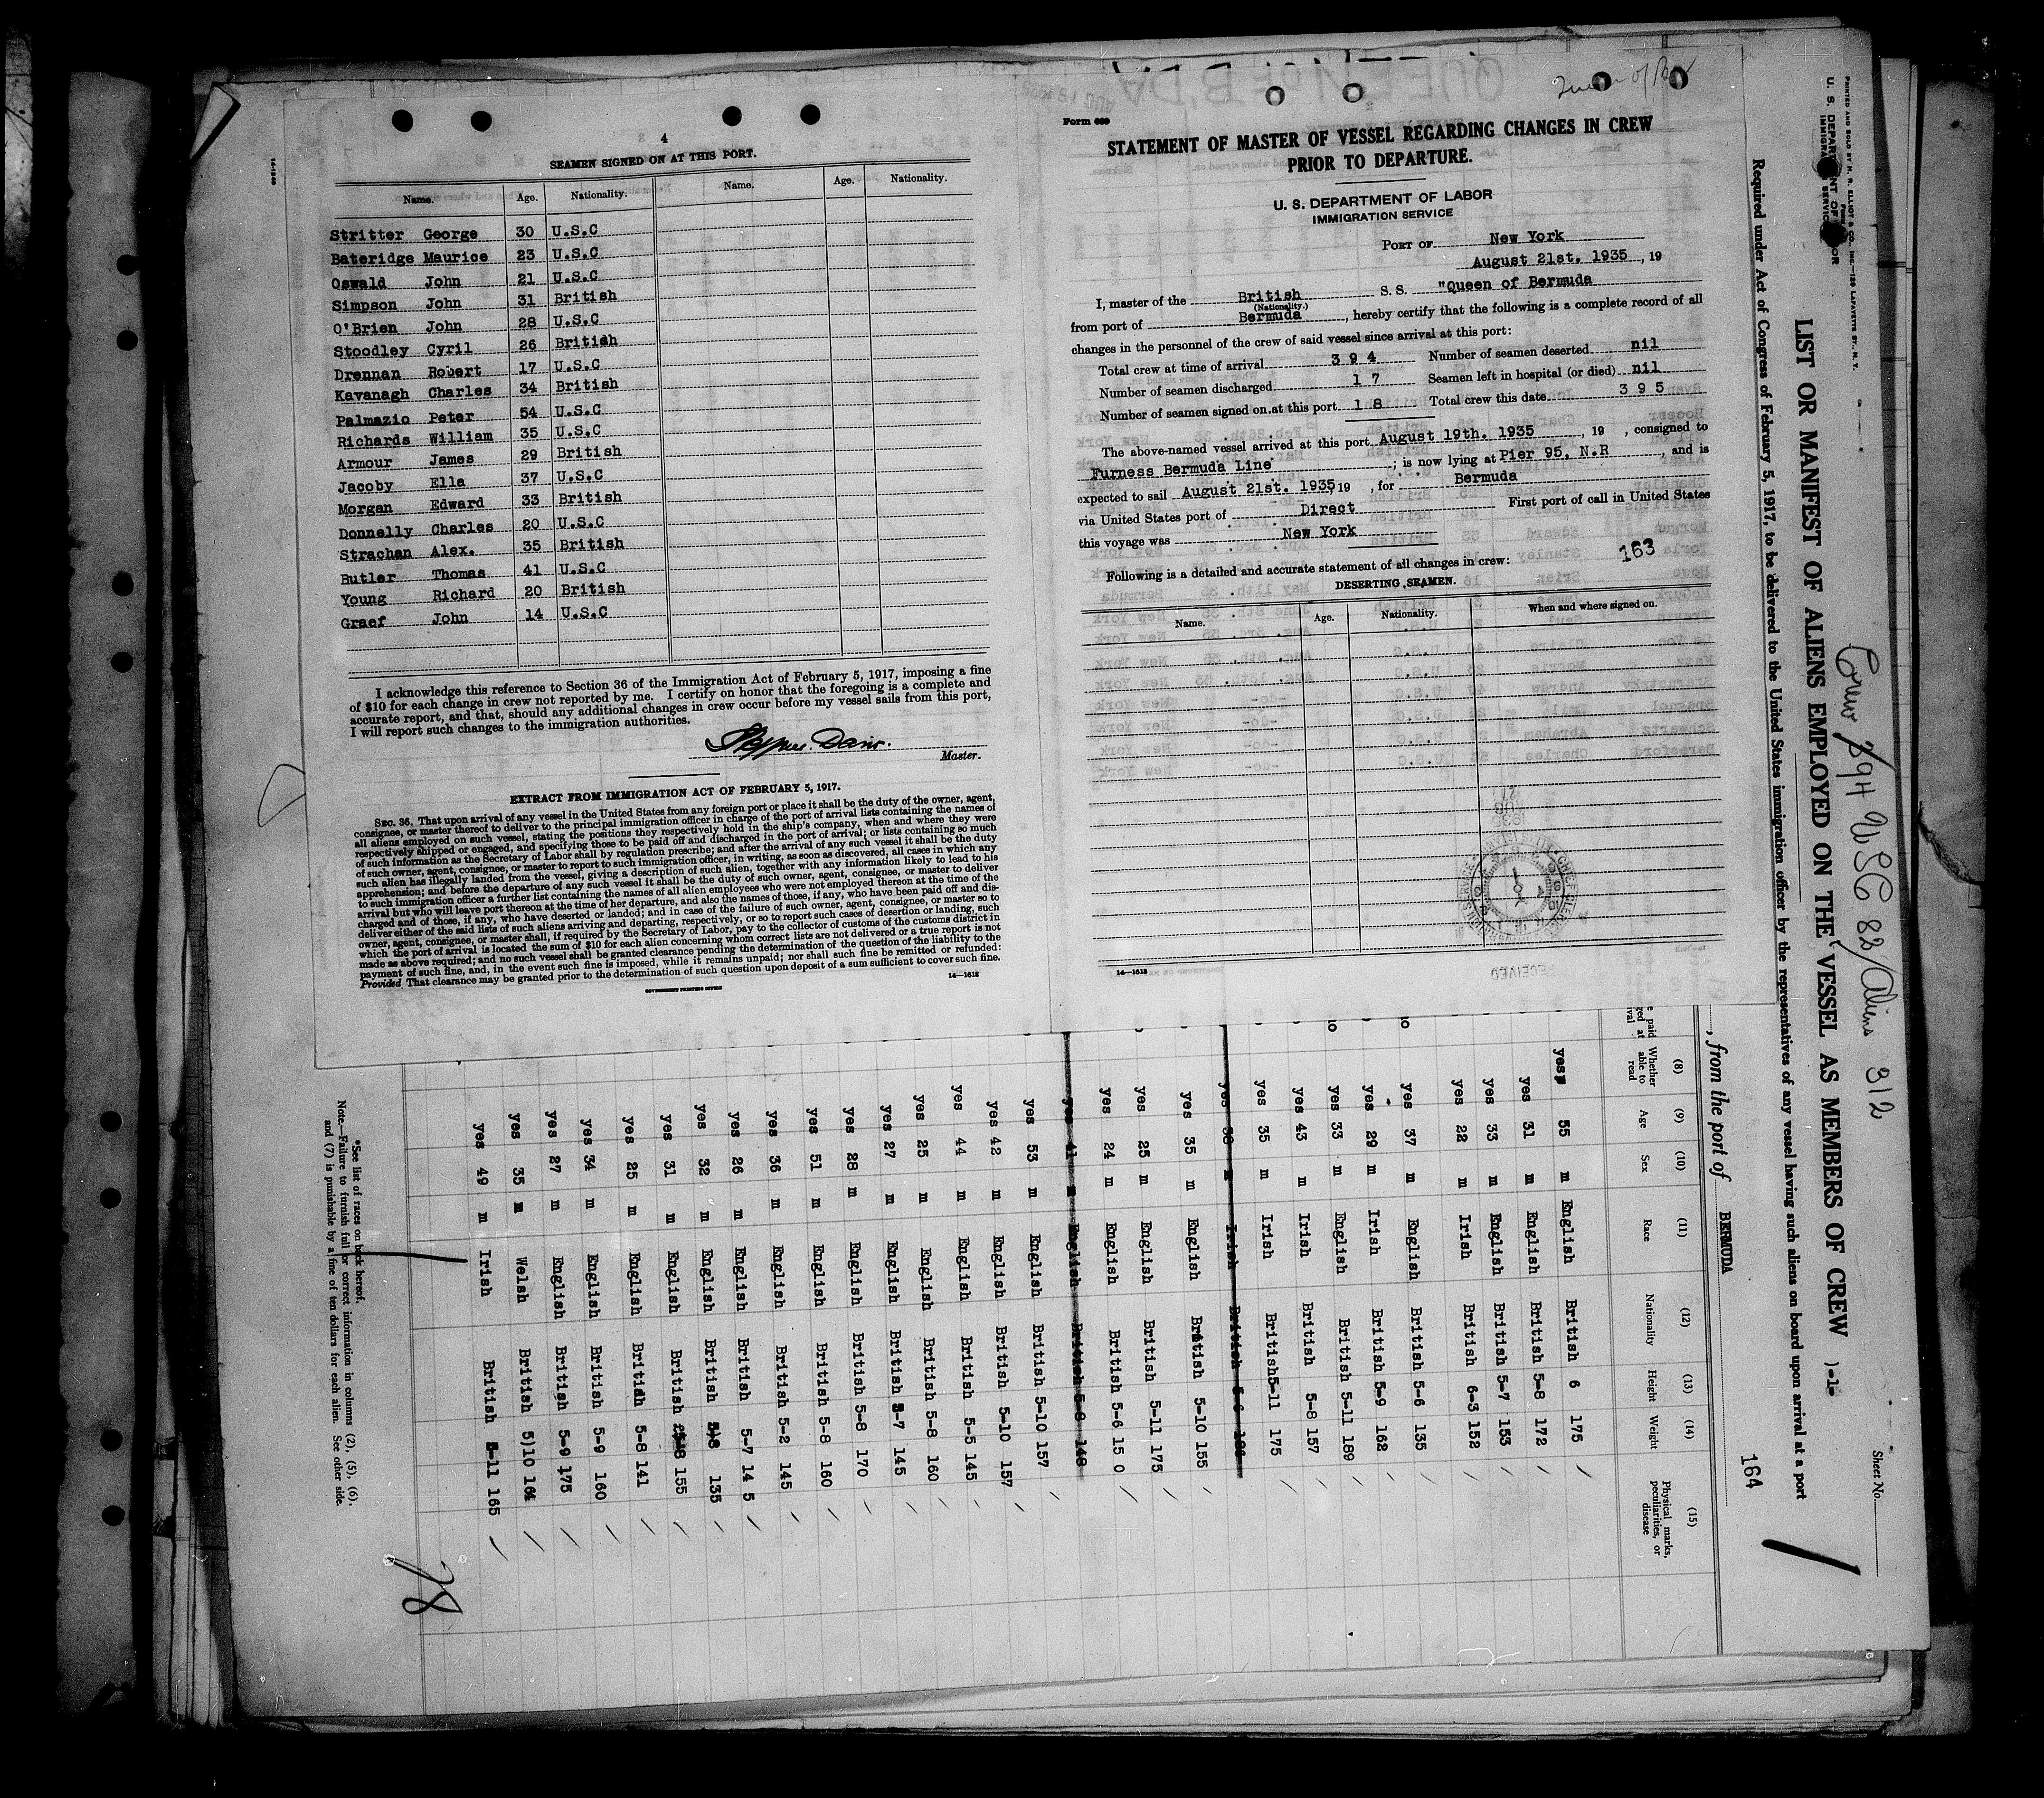 4
SEAMEN SIGNED ON AT THIS PORT.
Name. Age. Nationality. Name. Age. Nationality.
Stritter George 30 U.S.C
Bateridge Maurice 23 U.S.C
Oswald John 21 U.S.C
Simpson John 31 British
O'Brien John 28 U.S.C
Stoodley Cyril 26 British
Drennan Robert 17 U.S.C
Kavanagh Charles 34 British
Palmazio Peter 54 U.S.C
Richards William 35 U.S.C
Armour James 29 British
Jacoby Ella 37 U.S.C
Morgan Edward 33 British
Donnelly Charles 20 U.S.C
Strachan Alex. 35 British
Butler Thomas 41 U.S.C
Young Richard 20 British
Graef John 14 U.S.C
I acknowledge this reference to Section 36 of the Immigration Act of February 5, 1917, imposing a fine
of $10 for each change in crew not reported by me. I certify on honor that the foregoing is a complete and
accurate report, and that, should any additional changes in crew occur before my vessel sails from this port,
I will report such changes to the immigration authorities.
Master.
EXTRACT FROM IMMIGRATION ACT OF FEBRUARY 5, 1917.
SEC. 36. That upon arrival of any vessel in the United States from any foreign port or place it shall be the duty of the owner, agent,
consignee, or master thereof to deliver to the principal immigration officer in charge of the port of arrival lists containing the names of
all aliens employed on such vessel, stating the positions they respectively hold in the ship's company, when and where they were
respectively shipped or engaged, and specifying those to be paid off and discharged in the port of arrival; or lists containing so much
of such information as the Secretary of Labor shall by regulation prescribe; and after the arrival of any such vessel it shall be the duty
of such owner, agent, consignee, or master to report to such immigration officer, in writing, as soon as discovered, all cases in which any
such alien has illegally landed from the vessel, giving a description of such alien, together with any information likely to lead to his
apprehension; and before the departure of any such vessel it shall be the duty of such owner, agent, consignee, or master to deliver
to such immigration officer a further list containing the names of all alien employees who were not employed thereon at the time of the
arrival but who will leave port thereon at the time of her departure, and also the names of those, if any, who have been paid off and dis-
charged and of those, if any, who have deserted or landed; and in case of the failure of such owner, agent, consignee, or master so to
deliver either of the said lists of such aliens arriving and departing, respectively, or so to report such cases of desertion or landing, such
owner, agent, consignee, or master shall, if required by the Secretary of Labor, pay to the collector of customs of the customs district in
which the port of arrival is located the sum of $10 for each alien concerning whom correct lists are not delivered or a true report is not
made as above required; and no such vessel shall be granted clearance pending the determination of the question of the liability to the
payment of such fine, and, in the event such fine is imposed, while it remains unpaid; nor shall such fine be remitted or refunded:
Provided That clearance may be granted prior to the determination of such question upon deposit of a sum sufficient to cover such fine.
GOVERNMENT PRINTING OFFICE 14—1613
Form 689
STATEMENT OF MASTER OF VESSEL REGARDING CHANGES IN CREW
PRIOR TO DEPARTURE.
U. S. DEPARTMENT OF LABOR
IMMIGRATION SERVICE
PORT OF New York
August 21st. 1935, 19
I, master of the British S. S. "Queen of Bermuda
(Nationality.)
from port of Bermuda, hereby certify that the following is a complete record of all
changes in the personnel of the crew of said vessel since arrival at this port:
Total crew at time of arrival 3 9 4 Number of seamen deserted nil
Number of seamen discharged 1 7 Seamen left in hospital (or died) nil
Number of seamen signed on at this port 1 8 Total crew this date 3 9 5
The above-named vessel arrived at this port August 19th. 1935, 19 , consigned to
Furness Bermuda Line; is now lying at Pier 95, N.R, and is
expected to sail August 21st. 1935, 19 , for Bermuda
via United States port of Direct First port of call in United States
this voyage was New York
163
Following is a detailed and accurate statement of all changes in crew:
DESERTING SEAMEN.
Name. Age. Nationality. When and where signed on.
14—1613
Sheet No.
Crew 394 USC 82/Aliens 312
LIST OR MANIFEST OF ALIENS EMPLOYED ON THE VESSEL AS MEMBERS OF CREW )-1-
Required under Act of Congress of February 5, 1917, to be delivered to the United States immigration officer by the representatives of any vessel having such aliens on board upon arrival at a port
164
, from the port of BERMUDA
(8) (9) (10) (11) (12) (13) (14) (15)
Whether able to read Age Sex Race Nationality Height Weight Physical marks, peculiarities, or disease
yes 55 m English British 6 175
yes 31 m English British 5-8 172
yes 33 m English British 5-7 153
yes 22 m Irish British 6-3 152
yes 37 m English British 5-6 135
yes 29 m Irish British 5-9 162
yes 33 m English British 5-11 189
yes 43 m Irish British 5-8 157
yes 35 m Irish British 5-11 175
yes m Irish British 5-6
yes 35 m English British 5-10 155
yes 25 m English British 5-11 175
yes 24 m English British 5-6 15 0
yes 41 m English British 5-8 148
yes 53 m English British 5-10 157
yes 42 m English British 5-10 157
yes 44 m English British 5-5 145
yes 25 m English British 5-8 160
yes 27 m English British 5-7 145
yes 28 m English British 5-8 170
yes 51 m English British 5-8 160
yes 36 m English British 5-2 145
yes 26 m English British 5-7 14 5
yes 32 m English British 5-8 135
yes 31 m English British 155
yes 25 m English British 5-8 141
yes 34 m English British 5-9 160
yes 27 m English British 5-9 175
yes 35 m Welsh British 5)10 164
yes 49 m Irish British 5-11 165
*See list of races on back hereof.
Note.—Failure to furnish full or correct information in columns (2), (5), (6),
and (7) is punishable by a fine of ten dollars for each alien. See other side.